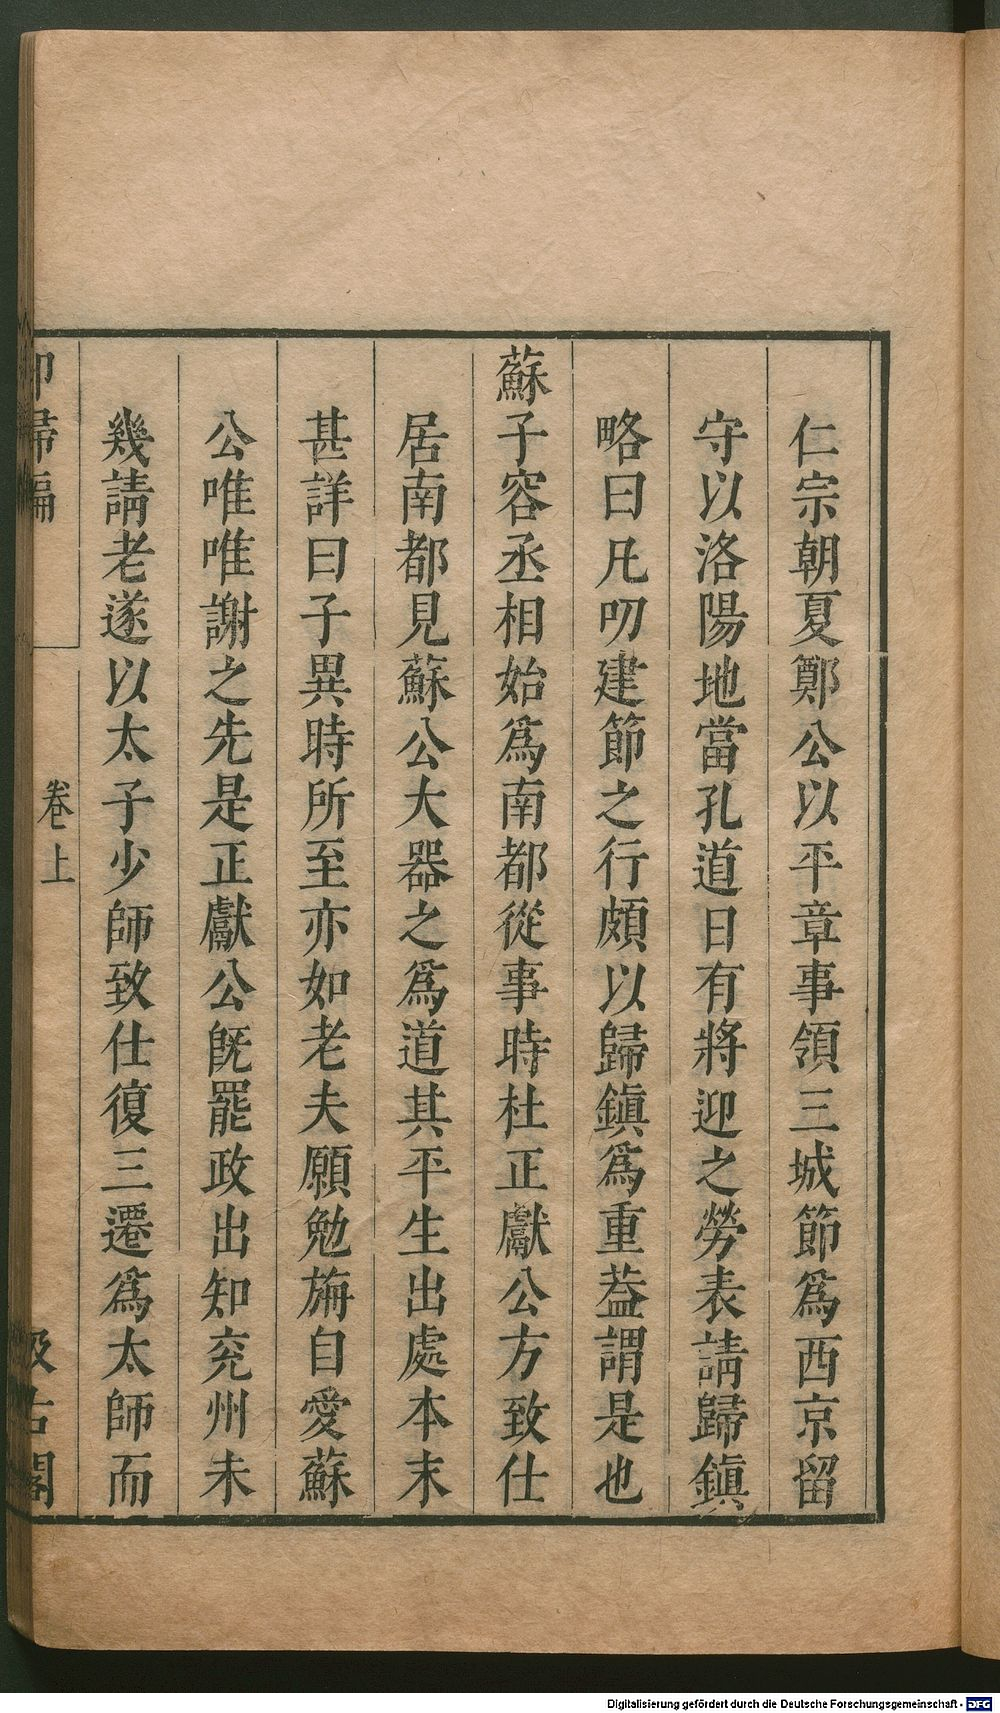 仁宗朝夏鄭公以平章事領三城節爲西京留
守以洛陽地當孔道日有將迎之勞表請歸鎮
略曰凡叨建節之行頗以歸鎮爲重葢謂是也
蘇子容丞相始爲南都從事時杜正獻公方致仕
居南都見蘇公大器之爲道其平生出處本末
甚詳曰子異時所至亦如老夫願勉旃自愛蘇
公唯唯謝之先是正獻公旣罷政出知兖州未
幾請老遂以太子少師致仕復三遷爲太師而
卻埽編
卷上
汲古閣
Digitalisierung gefördert durch die Deutsche Forschungsgemeinschaft - DFG